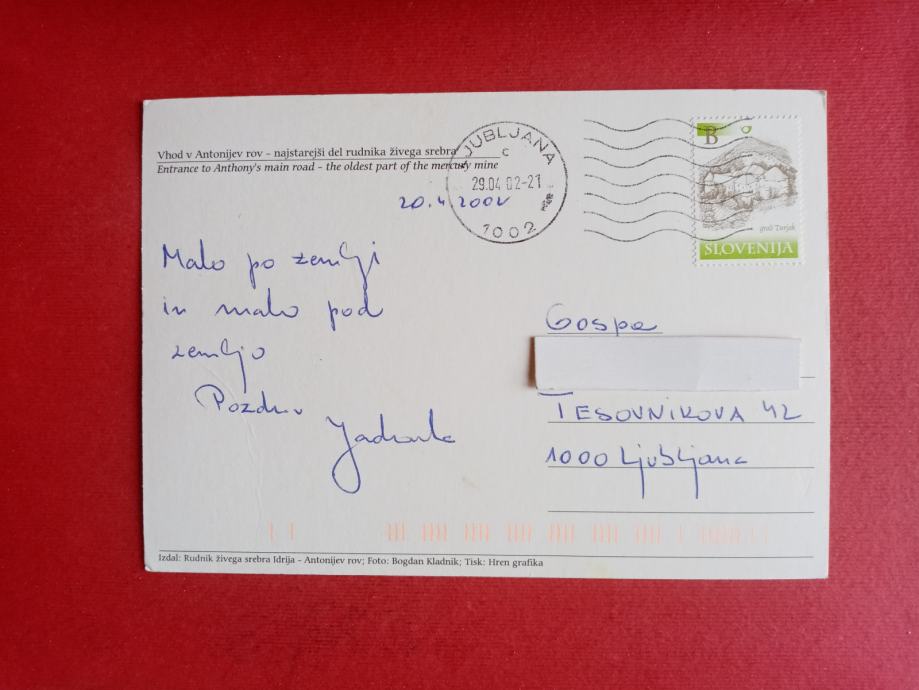 Vhod v Antonijev rov – najstarejši del rudnika živega srebra
Entrance to Anthony's main road - the oldest part of the mercury mine
LJUBLJANA
C
29.04.02-21
1002
B
grad Turjak
SLOVENIJA
20.4.2002
Malo po zemlji
in malo pod
zemljo
Pozdrav
Gospa
TESOVNIKOVA 42
1000 Ljubljana
Izdal: Rudnik živega srebra Idrija – Antonijev rov; Foto: Bogdan Kladnik; Tisk: Hren grafika